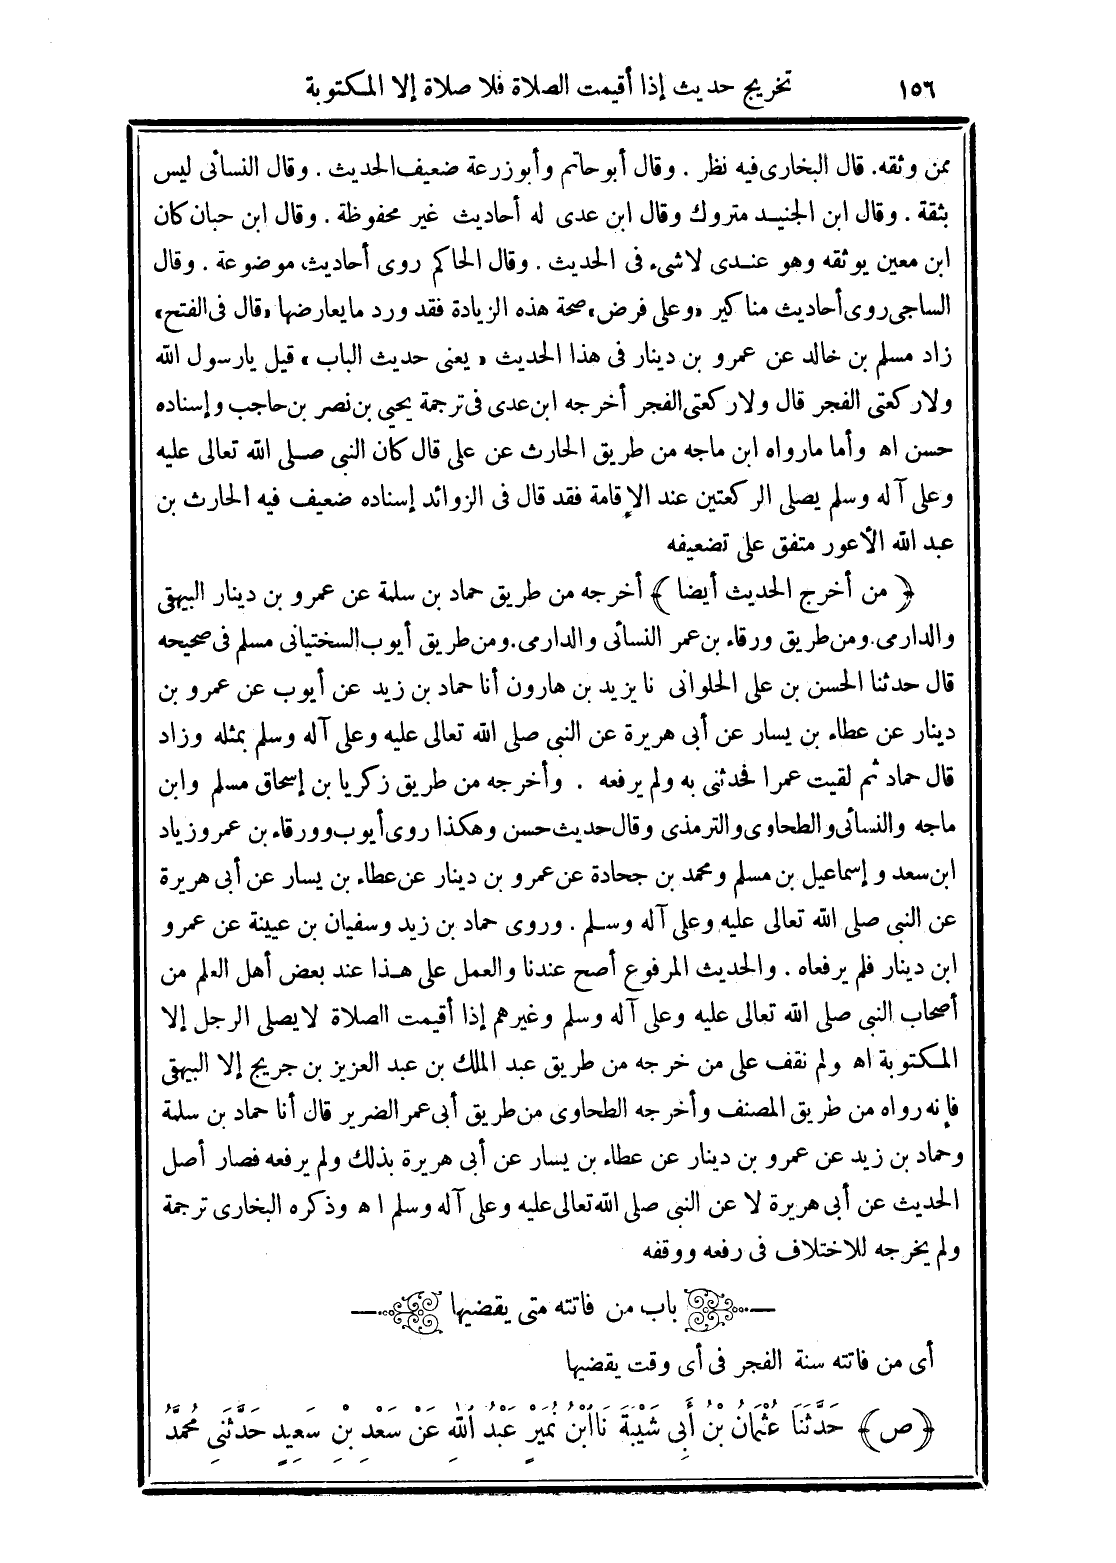 ١٥٦ تخريج حديث إذا أقيمت الصلاة فلا صلاة إلا المكتوبة
ممن وثقه. قال البخارى فيه نظر . وقال أبو حاتم وأبو زرعة ضعيف الحديث . وقال النسائى ليس
بثقة . وقال ابن الجنيد متروك وقال ابن عدى له أحاديث غير محفوظة . وقال ابن حبان كان
ابن معين يوثقه وهو عندى لاشىء فى الحديث . وقال الحاكم روى أحاديث موضوعة . وقال
الساجى روى أحاديث مناكير «وعلى فرض» صحة هذه الزيادة فقد ورد مايعارضها «قال فى الفتح»
زاد مسلم بن خالد عن عمرو بن دينار فى هذا الحديث «يعنى حديث الباب» قيل يارسول الله
ولاركعتى الفجر قال ولاركعتى الفجر أخرجه ابن عدى فى ترجمة يحيى بن نصر بن حاجب وإسناده
حسن اه وأما مارواه ابن ماجه من طريق الحارث عن على قال كان النبى صلى الله تعالى عليه
وعلى آله وسلم يصلى الركعتين عند الإقامة فقد قال فى الزوائد إسناده ضعيف فيه الحارث بن
عبد الله الأعور متفق على تضعيفه
﴿من أخرج الحديث أيضا﴾ أخرجه من طريق حماد بن سلمة عن عمرو بن دينار البيهقى
والدارمى. ومن طريق ورقاء بن عمر النسائى والدارمى. ومن طريق أيوب السختيانى مسلم فى صحيحه
قال حدثنا الحسن بن على الحلوانى نا يزيد بن هارون أنا حماد بن زيد عن أيوب عن عمرو بن
دينار عن عطاء بن يسار عن أبى هريرة عن النبى صلى الله تعالى عليه وعلى آله وسلم بمثله وزاد
قال حماد ثم لقيت عمرا فحدثنى به ولم يرفعه . وأخرجه من طريق زكريا بن إسحاق مسلم وابن
ماجه والنسائى والطحاوى والترمذى وقال حديث حسن وهكذا روى أيوب وورقاء بن عمر وزياد
ابن سعد وإسماعيل بن مسلم ومحمد بن جحادة عن عمرو بن دينار عن عطاء بن يسار عن أبى هريرة
عن النبى صلى الله تعالى عليه وعلى آله وسلم . وروى حماد بن زيد وسفيان بن عيينة عن عمرو
ابن دينار فلم يرفعاه . والحديث المرفوع أصح عندنا والعمل على هذا عند بعض أهل العلم من
أصحاب النبى صلى الله تعالى عليه وعلى آله وسلم وغيرهم إذا أقيمت الصلاة لايصلى الرجل إلا
المكتوبة اه ولم نقف على من خرجه من طريق عبد الملك بن عبد العزيز بن جريج إلا البيهقى
فإنه رواه من طريق المصنف وأخرجه الطحاوى من طريق أبى عمر الضرير قال أنا حماد بن سلمة
وحماد بن زيد عن عمرو بن دينار عن عطاء بن يسار عن أبى هريرة بذلك ولم يرفعه فصار أصل
الحديث عن أبى هريرة لا عن النبى صلى الله تعالى عليه وعلى آله وسلم اه وذكره البخارى ترجمة
ولم يخرجه للاختلاف فى رفعه ووقفه
باب من فاتته متى يقضيها
أى من فاتته سنة الفجر فى أى وقت يقضيها
﴿ص﴾ حَدَّثَنَا عُثْمَانُ بْنُ أَبِى شَيْبَةَ نَا ابْنُ نُمَيْرٍ عَبْدُ اللهِ عَنْ سَعْدِ بْنِ سَعِيدٍ حَدَّثَنِى مُحَمَّدُ